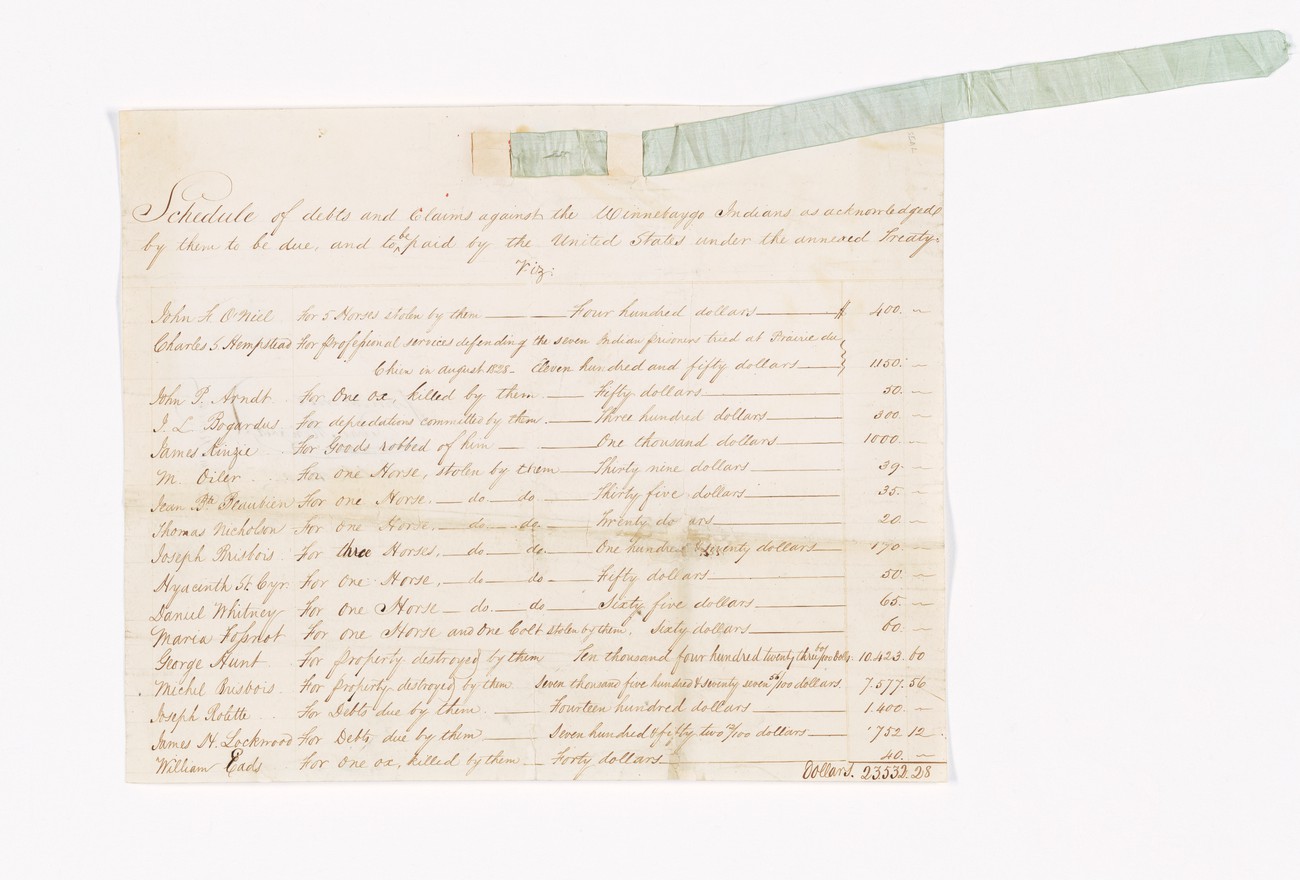 Schedule of debts and Claims against the Winnebaygo Indians as acknowledged
by them to be due, and to be paid by the United States under the annexed Treaty.
Viz:
John S. O'Niel For 5 Horses stolen by them — Four hundred dollars — $ 400. —
Charles S Hempstead For professional services defending the seven Indian prisoners tried at Prairie du
Chien in august 1828 - Eleven hundred and fifty dollars — 1150. —
John P. Arndt. For One ox, killed by them. — Fifty dollars — 50. —
J. L. Bogardus For depredations committed by them. — Three hundred dollars — 300. —
James Kinzie For Goods robbed of him — One thousand dollars — 1000. —
M. Oiler For one Horse, stolen by them — Thirty nine dollars — 39. —
Jean Bte Beaubien For one Horse. — do — do — Thirty five dollars — 35. —
Thomas Nicholson For one Horse, — do — do — Twenty do ars — 20. —
Joseph Brisbois. For three Horses, — do — do — One hundred & seventy dollars — 170. —
Hyacinth St. Cyr. For One Horse, — do — do — Fifty dollars — 50. —
Daniel Whitney For one Horse — do. — do — Sixty five dollars — 65. —
Maria Fossnot For one Horse and One Colt stolen by them, Sixty dollars — 60. —
George Hunt For property destroyed by them Ten thousand four hundred twenty three 60/100 Dolls. 10.423. 60
Michel Brisbois. For property destroyed by them Seven thousand five hundred & seventy seven 56/100 dollars. 7.577. 56
Joseph Rolette For Debts due by them. — Fourteen hundred dollars — 1.400. —
James H. Lockwood For Debts due by them — Seven hundred & fifty two 12/100 dollars — 752. 12
William Eads For One ox, killed by them — Forty dollars — 40. —
Dollars. 23.532. 28